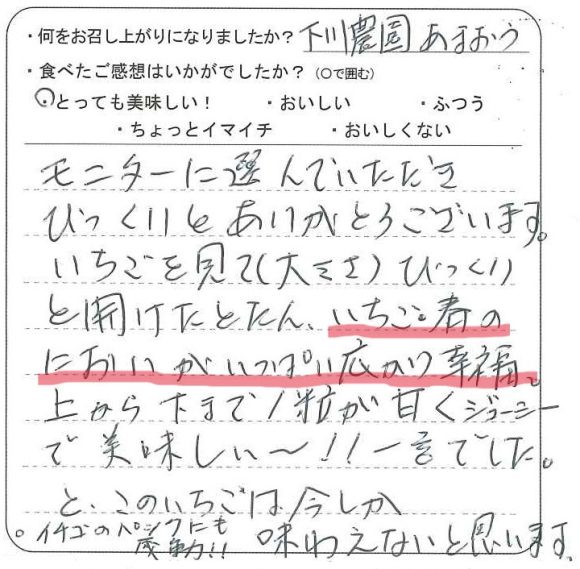 ・何をお召し上がりになりましたか? 下川農園 あまおう
・食べたご感想はいかがでしたか?(○で囲む)
・とっても美味しい! ・おいしい ・ふつう
・ちょっとイマイチ ・おいしくない
モニターに選んでいただき
びっくりとありがとうございます。
いちごを見て(大きさ)びっくり
と開けたとたん、いちご春の
においがいっぱい広がり幸福。
上から下まで1粒が甘くジューシー
で美味しい〜!!一言でした。
と、このいちごは今しか
味わえないと思います。
。イチゴのパックにも
感動!!